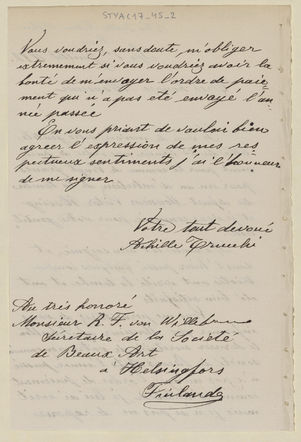 STYA C17_45_2
Vous voudriez, sans doute, m'obliger
extremement si vous voudriez avoir la
bonté de m'envoyer l'ordre de paie-
ment qui n'a pas été envoyé l'an
née passée
En vous priant de vouloir bien
agreer l'expression de mes res
pectueux sentiments j'ai l'honneur
de me signer
Votre tout devoué
Achille
Au très honoré
Monsieur R. F. von Willebrand
Secretaire de la Société
de Beaux Art
à Helsingfors
Finlande